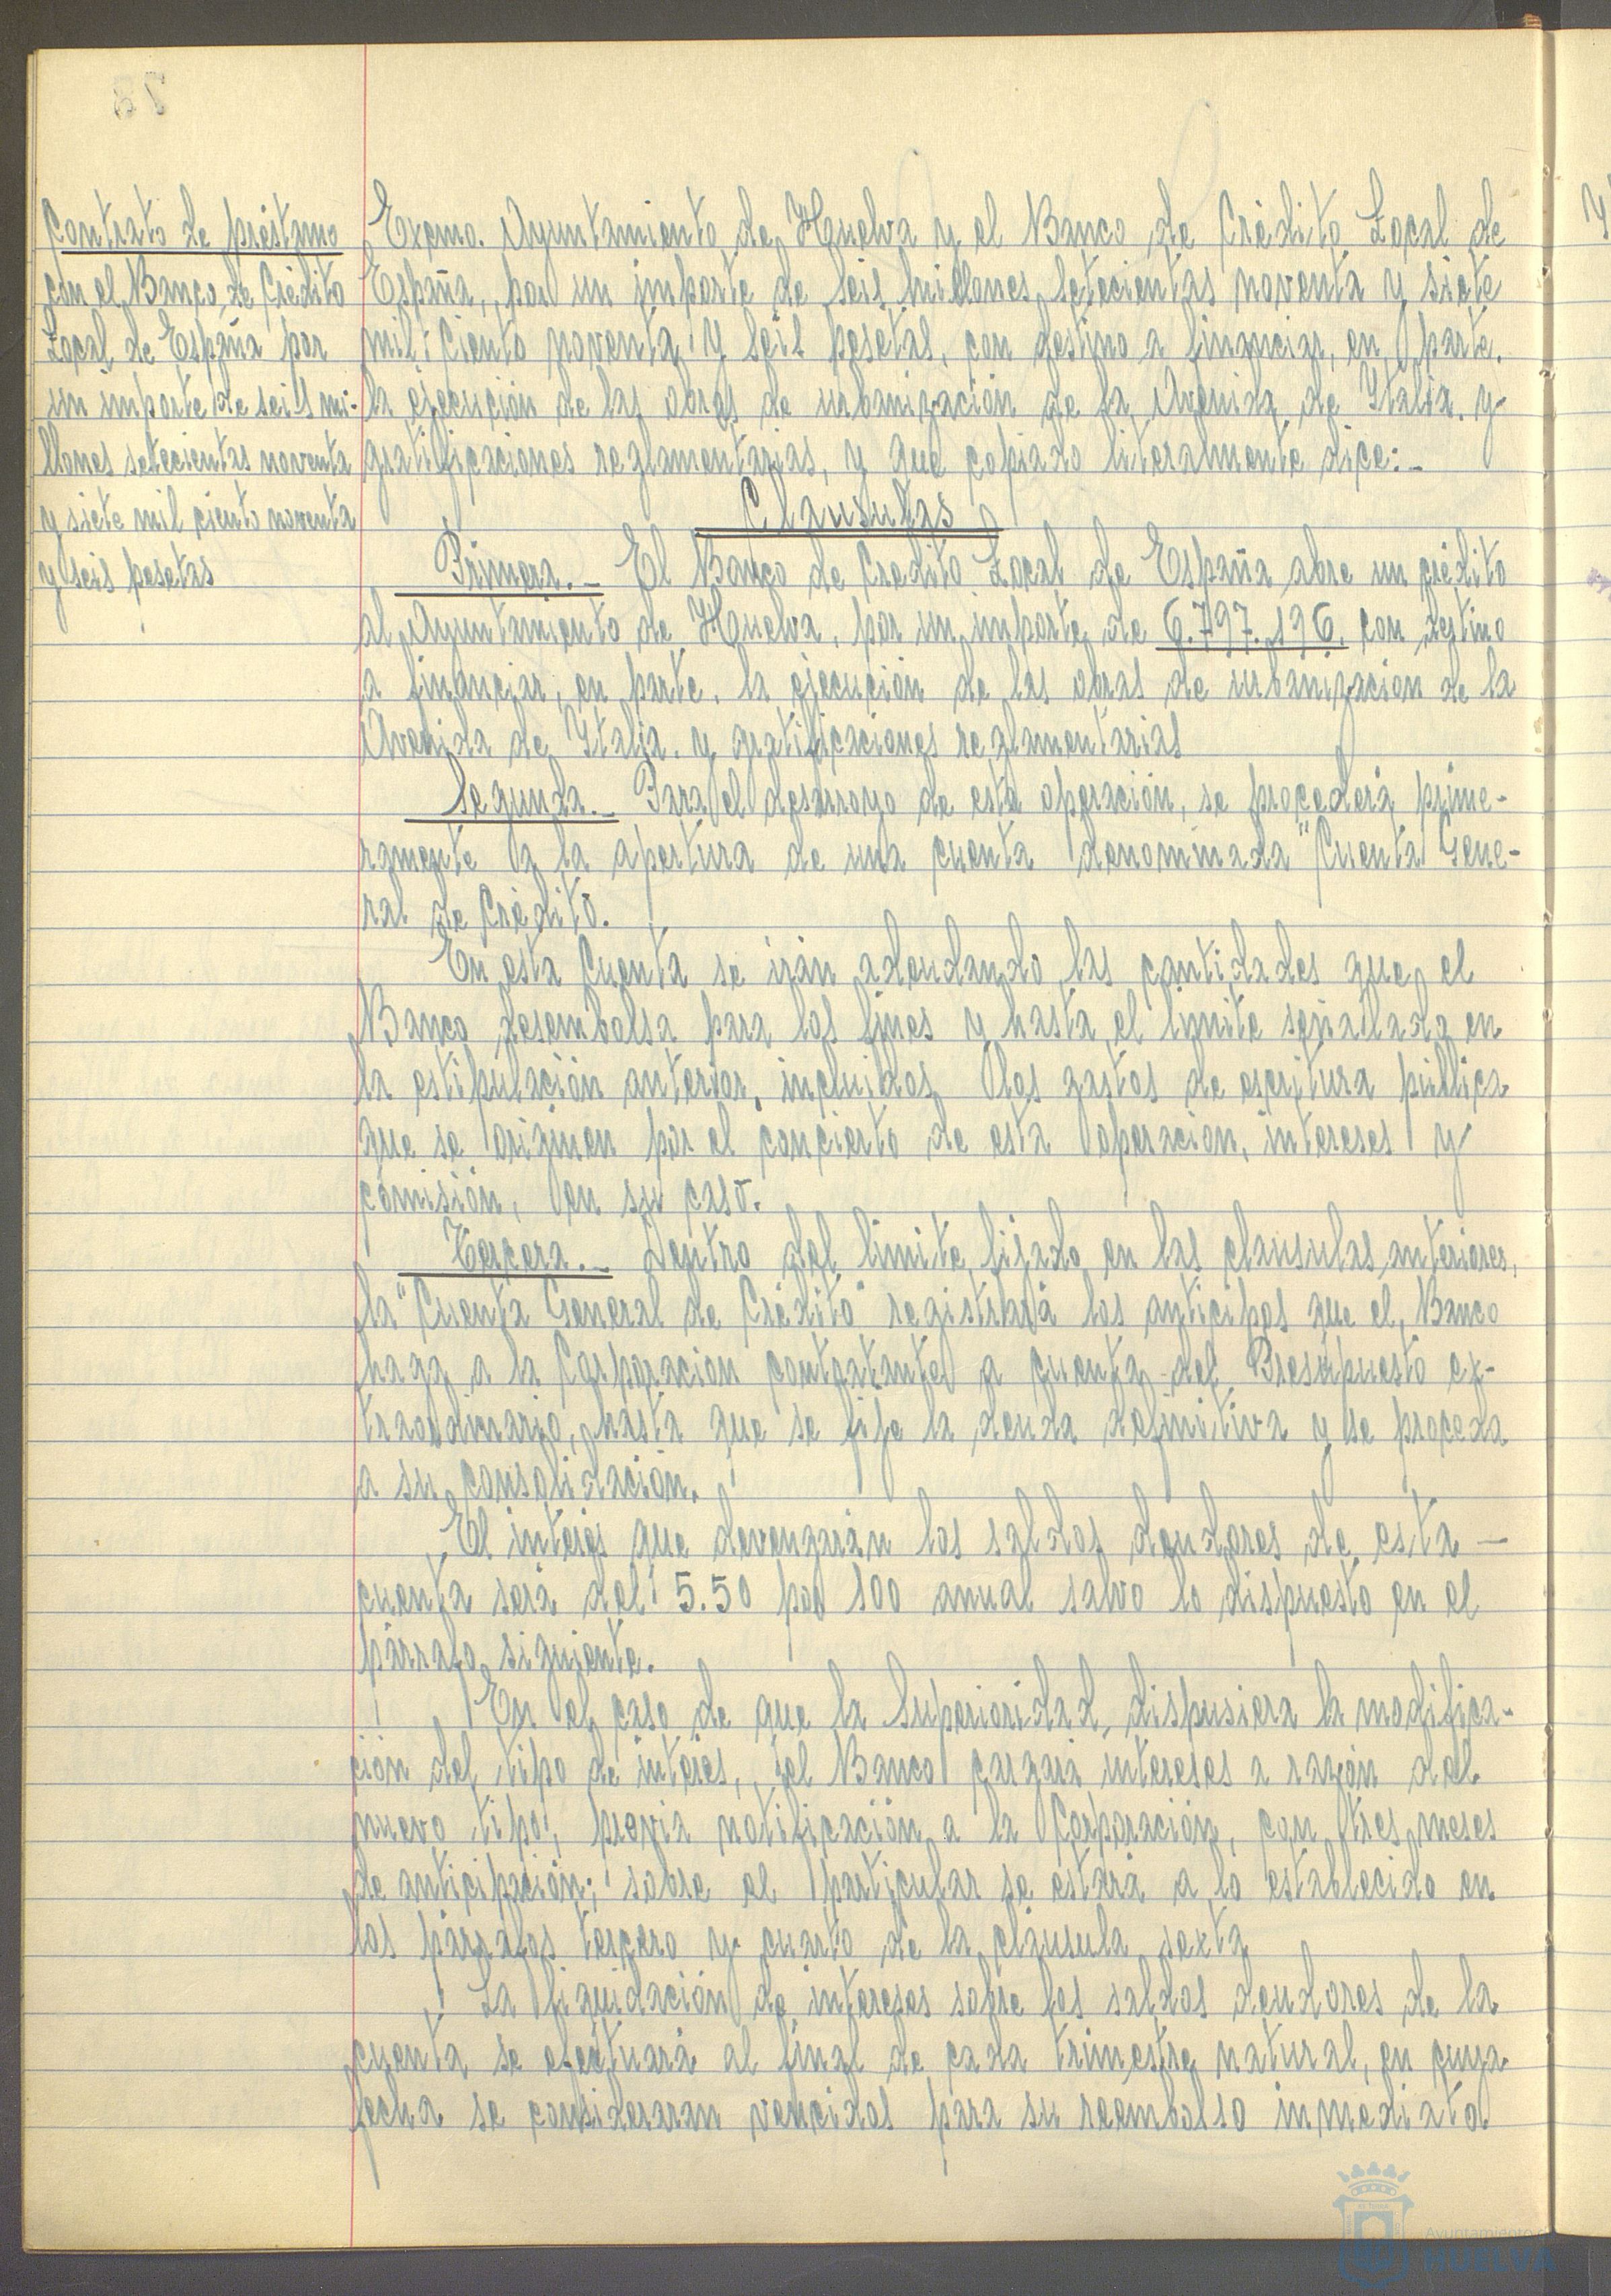 Contrato de préstamo
con el Banco de Crédito
Local de España por
un importe de seis mi-
llones setecientas noventa
y siete mil ciento noventa
y seis pesetas
Excmo. Ayuntamiento de Huelva y el Banco de Crédito Local de
España, por un importe de seis millones setecientas noventa y siete
mil ciento noventa y seis pesetas, con destino a financiar, en parte,
la ejecución de las obras de urbanización de la Avenida de Italia, y
gratificaciones reglamentarias, y que copiado literalmente dice:-
Clausulas
Primera.- El Banco de Credito Local de España abre un crédito
al Ayuntamiento de Huelva, por un importe de 6.797.196, con destino
a financiar, en parte, la ejecución de las obras de urbanizacion de la
Avenida de Italia, y gratificaciones reglamentarias
Segunda.- Para el desarroyo de esta operación, se procederá prime-
ramente a la apertura de una cuenta denominada "Cuenta Gene-
ral de Crédito.
En esta Cuenta se irán adeudando las cantidades que el
Banco desembolsa para los fines y hasta el limite señalado en
la estipulación anterior, incluidos los gastos de escritura pública
que se originen por el concierto de esta operacion, intereses y
comisión, en su caso.
Tercera.- Dentro del limite fijado en las clausulas anteriores,
la "Cuenta General de Crédito" registrará los anticipos que el Banco
haga a la Corporacion contratante a cuenta del Presupuesto ex-
traordinario, hasta que se fije la deuda definitiva y se proceda
a su consolidación.
El interés que devengarán los saldos deudores de esta -
cuenta será del 5.50 por 100 anual salvo lo dispuesto en el
párrafo siguiente.
En el caso de que la Superioridad, dispusiera la modifica-
ción del tipo de interés, el Banco cargará intereses a razón del
nuevo tipo, previa notificación a la Corporación, con tres meses
de anticipación; sobre el particular se estará a lo establecido en
los párrafos tercero y cuarto de la cláusula sexta
La liquidación de intereses sobre los saldos deudores de la
cuenta se efectuará al final de cada trimestre natural, en cuya
fecha se consideraran vencidos para su reembolso inmediato
Ayuntamiento
HUELVA